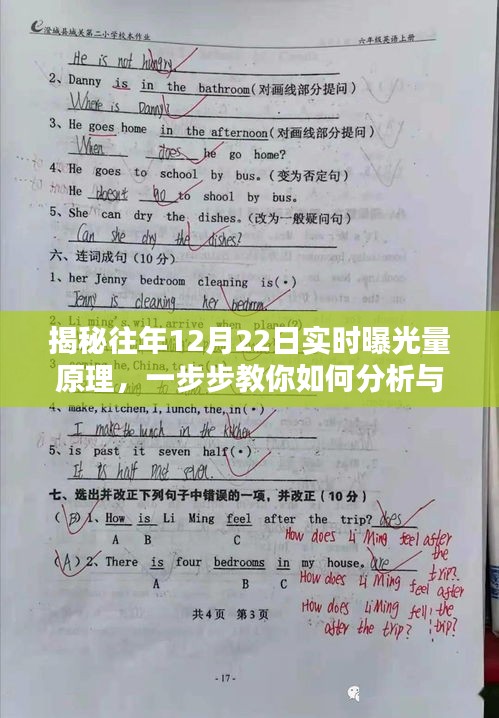 澄城县城关第二小学校本作业 六年级英语上册
He is not hungry.
2、Danny is in the bathroom(对画线部分提问)
Where is Danny?
3、He goes home in the afternoon(对画线部分提问)
When does he go home?
4、He goes to school by bus。(变为否定句)
He doesnt go to shool by bus.
5、She can dry the dishes。(改为一般疑问句)
Can she dry the dishes?
六、连词成句(10分)
1、her Jenny bedroom cleaning is(•)
Jenny is cleaning her bedroom.
2、Li ming's, will, arrive, when, plane(?)
揭秘往年12月22日实时曝光量
原理，一步步教你如何分析与
4、make,kitchen,I,lunch,the,in(•)
I make the lunch in the kitchen
5、is past it seven half(•)
It is half past seven.
七、选出并改正下列句子中错误的一项，并改正(10分)
(B)1、How is Li Ming feel after the trip? does
A B C
How does Li Ming feel after the trip?
(A)2、There is four bedrooms in my house. are
A B C
How does Li Ming feel after the trip?
How does LiMing fell the after the trip?
共4页 第3页
- 17 -